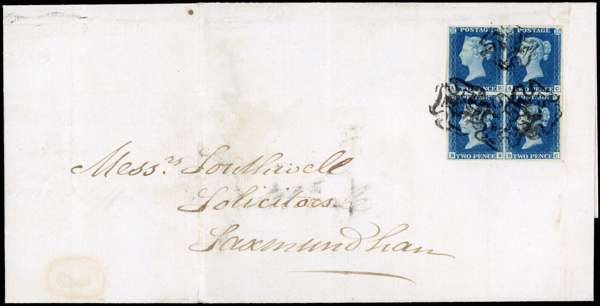 POSTAGE POSTAGE
TWO PENCE TWO PENCE
TWO PENCE TWO PENCE
Mess.rs Southwell
Solicitors
Saxmundham